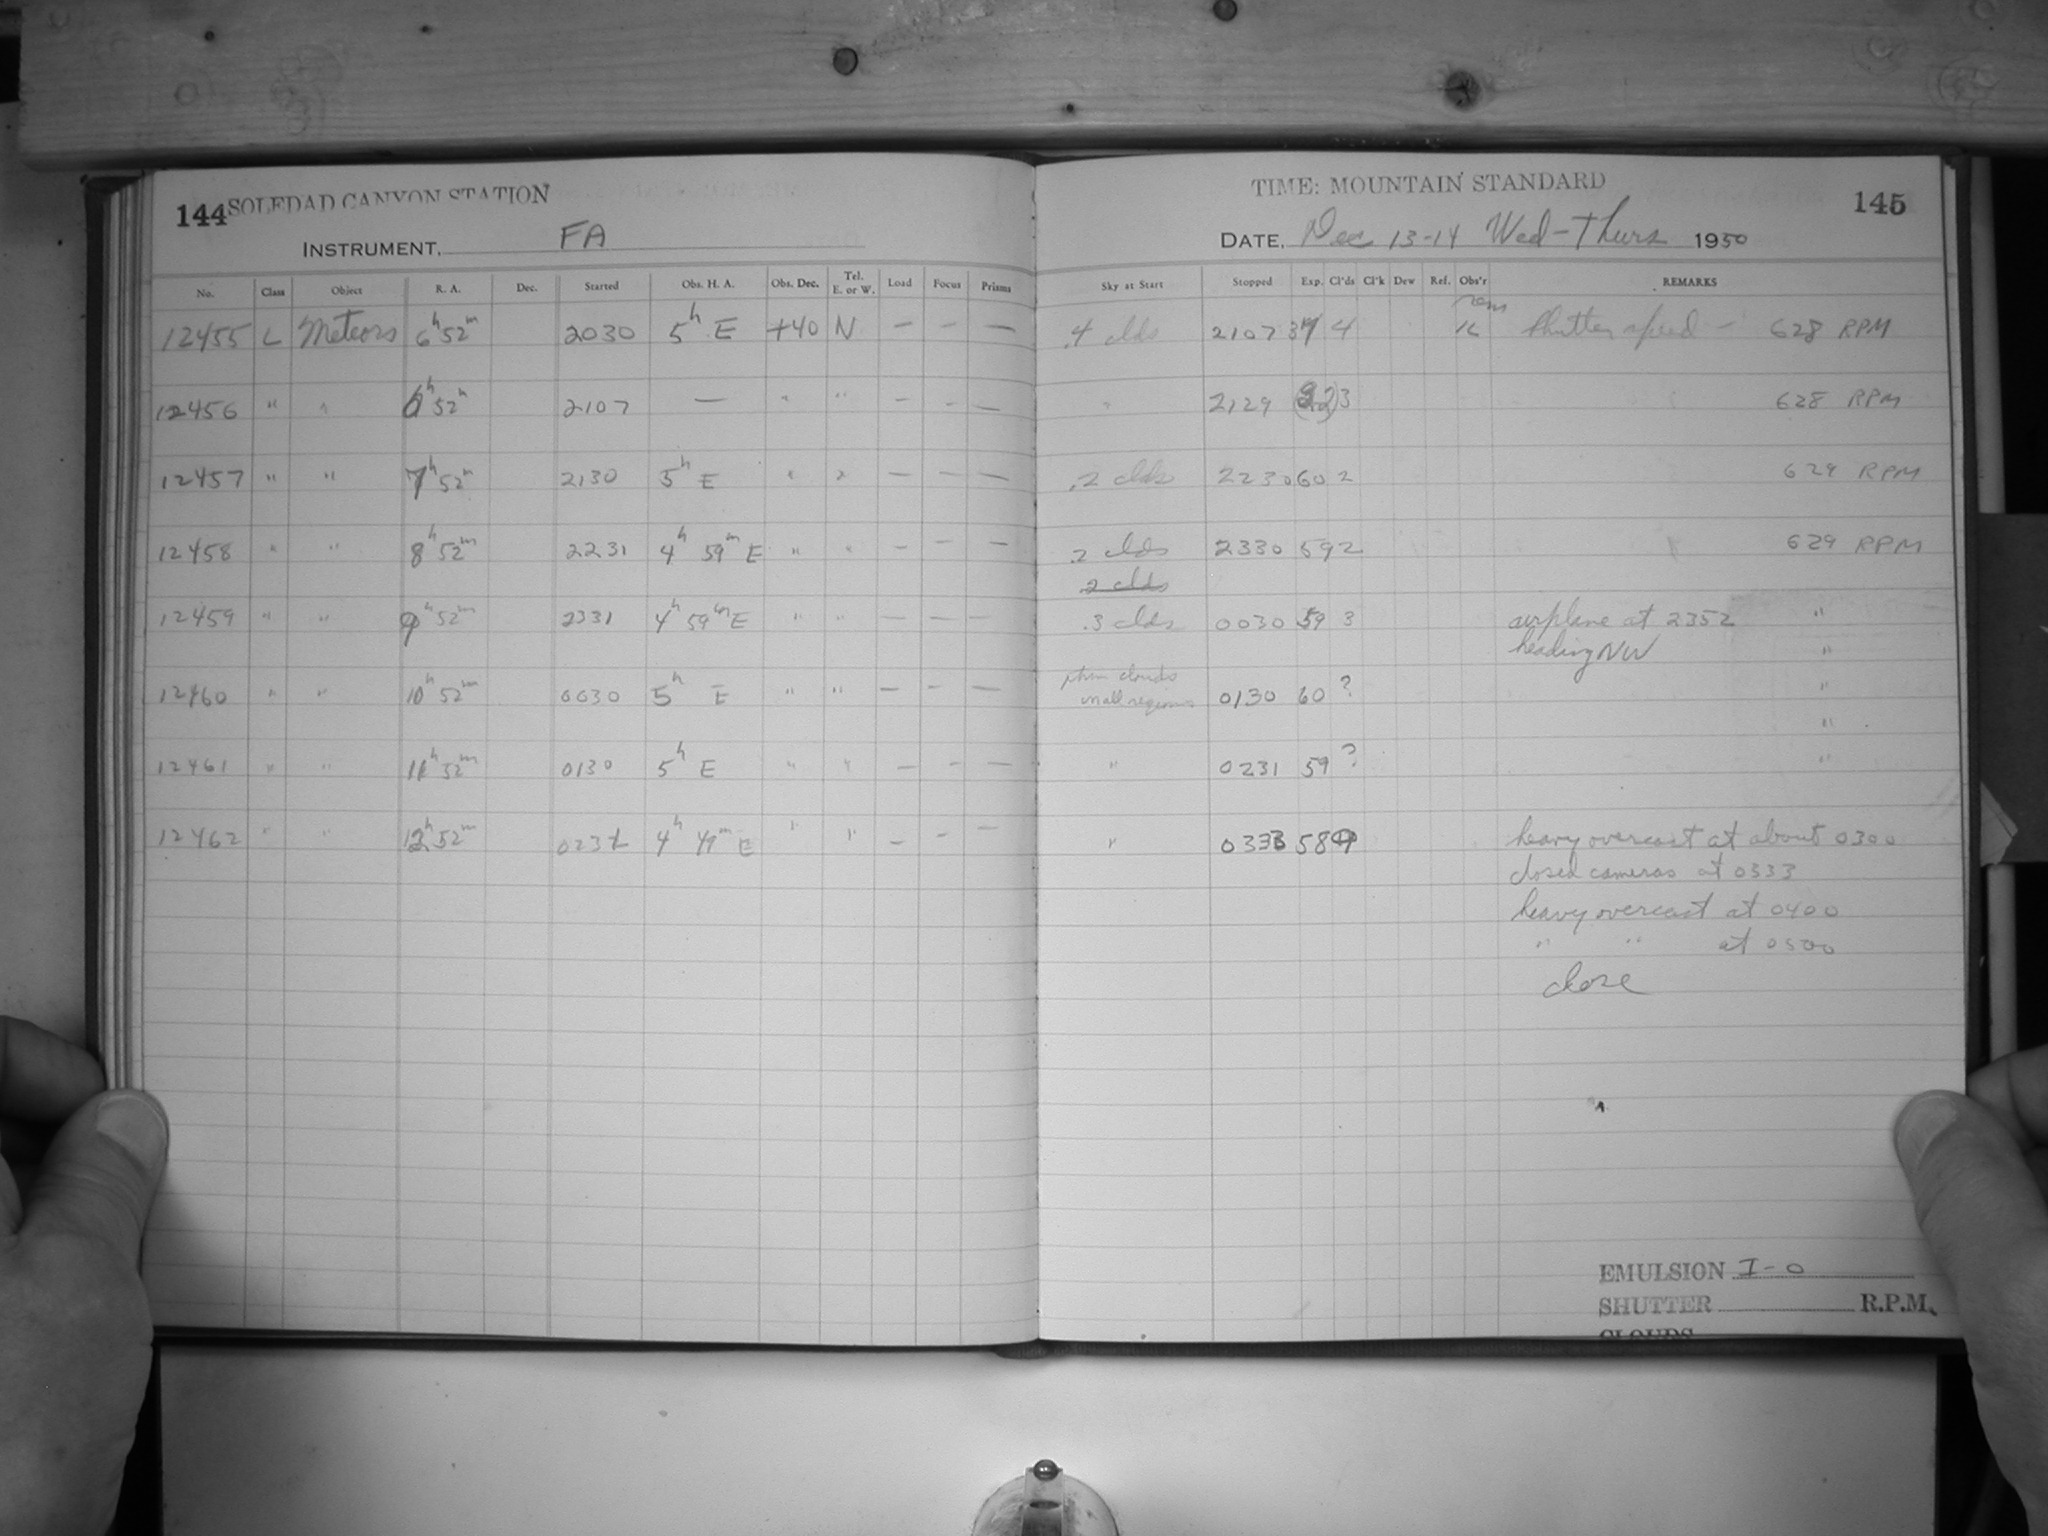 144 SOLEDAD CANYON STATION
INSTRUMENT, FA
No. Class Object R. A. Dec. Started Obs. H. A. Obs. Dec. Tel. E. or W. Load Focus Prisms
12455 L Meteors 6h 52m 2030 5h E +40 N — — —
12456 " " 6h 52m 2107 — " " — — —
12457 " " 7h 52m 2130 5h E " " — — —
12458 " " 8h 52m 2231 4h 59m E " " — — —
12459 " " 9h 52m 2331 4h 59m E " " — — —
12460 " " 10h 52m 0030 5h E " " — — —
12461 " " 11h 52m 0130 5h E " " — — —
12462 " " 12h 52m 4h 49m E " " — — —
TIME: MOUNTAIN STANDARD 145
DATE, Dec 13-14 Wed-Thurs 1950
Sky at Start Stopped Exp. Cl'ds Cl'k Dew Ref. Obs'r REMARKS
.4 clds 2107 37 4 Shutter speed — 628 RPM
" 2129 (22) 3 628 RPM
.2 clds 2230 60 2 629 RPM
.2 clds 2330 59 2 629 RPM
.2 clds
.3 clds 0030 59 3 airplane at 2352 "
heading NW "
thin clouds
in all regions 0130 60 ? "
"
" 0231 59 ? "
" 0333 58 9 heavy overcast at about 0300
closed cameras at 0333
heavy overcast at 0400
" " at 0500
close
EMULSION I-O
SHUTTER R.P.M.
CLOUDS